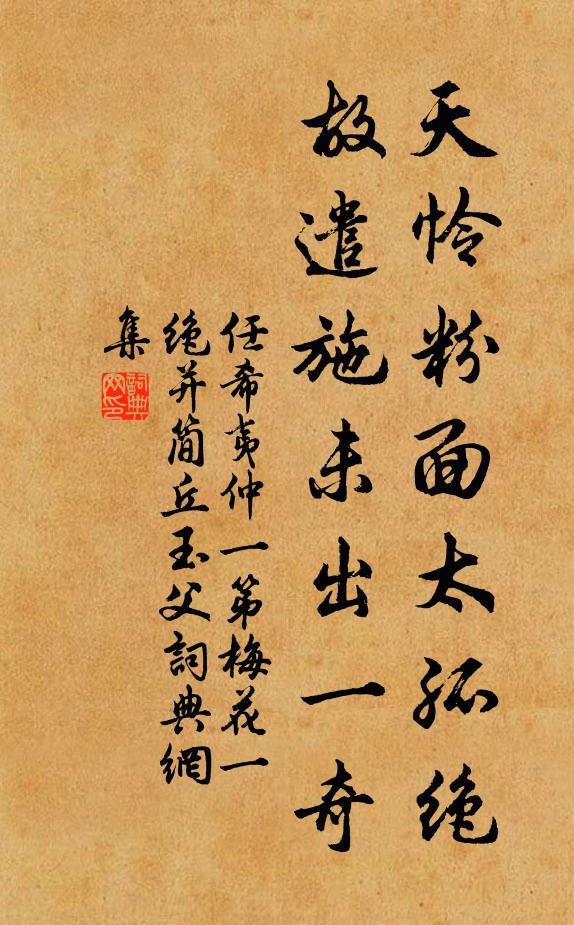 天怜粉面太孤绝
故遣施朱出一奇
任希夷仲一第梅花一
绝并简丘玉父詞典網
集
詞典网印